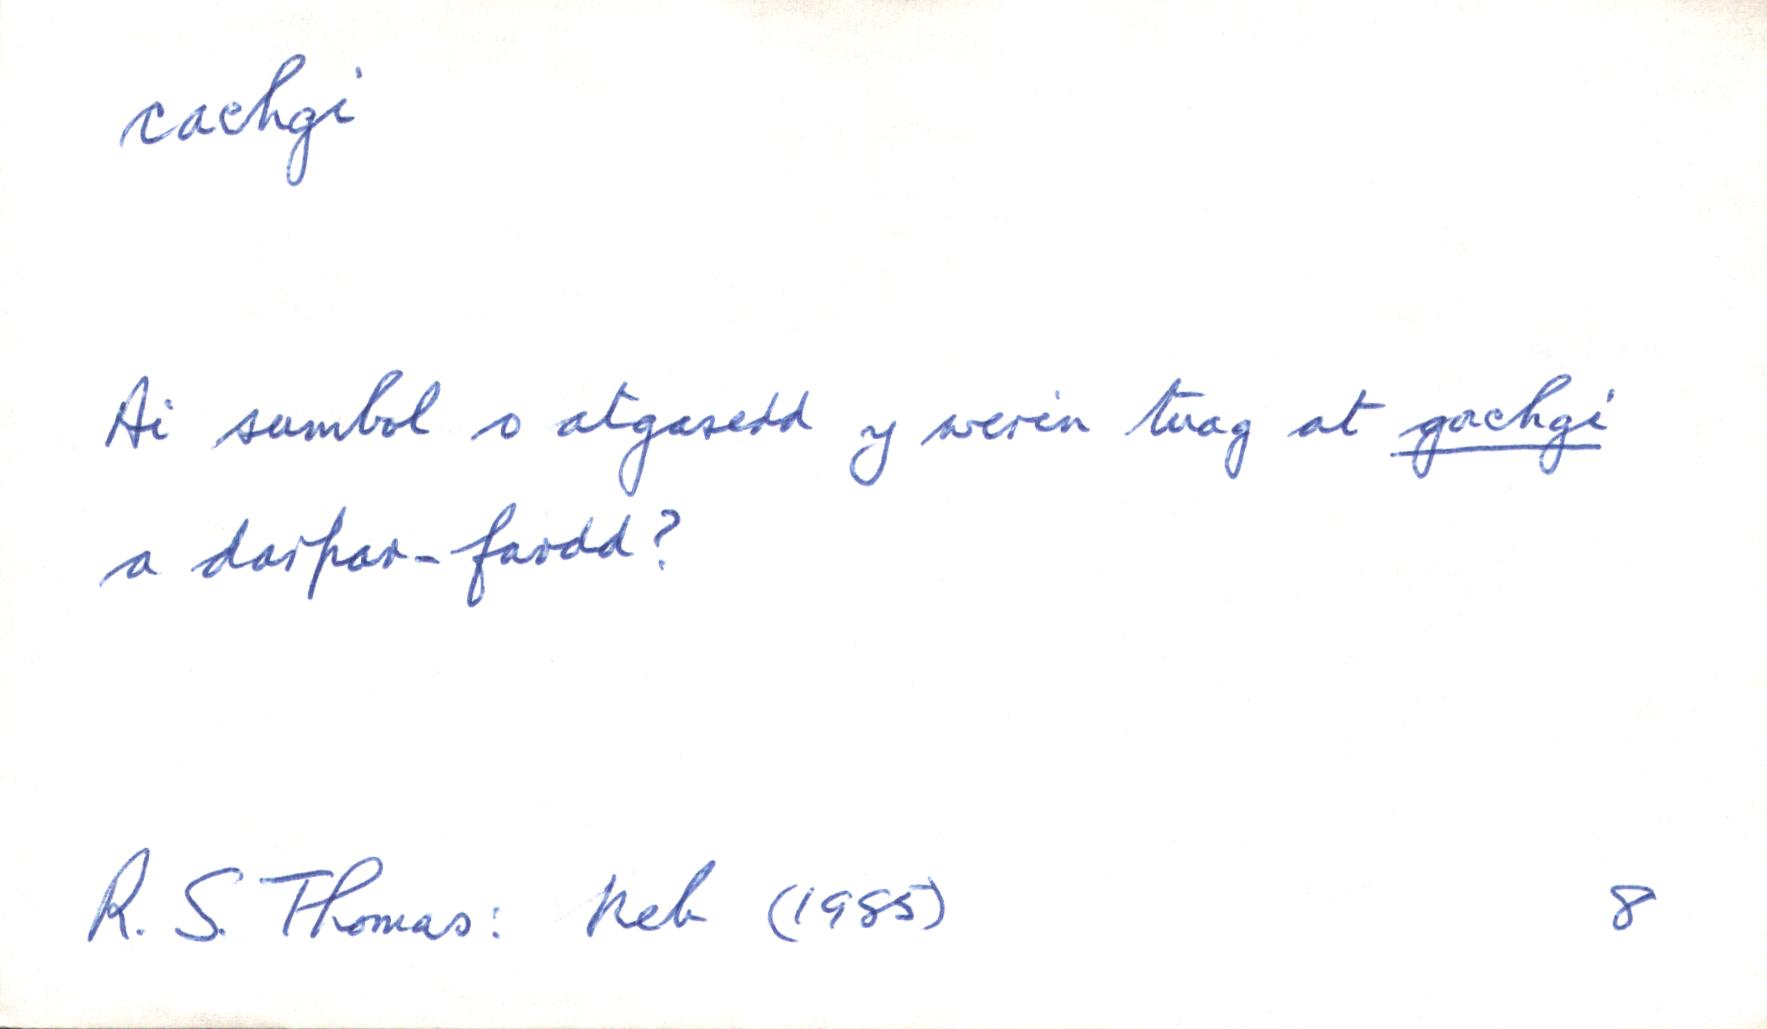 cachgi
Ai sumbol o atgasedd y werin tuag at gachgi
a darpar-fardd?
R. S. Thomas: Neb (1985) 8